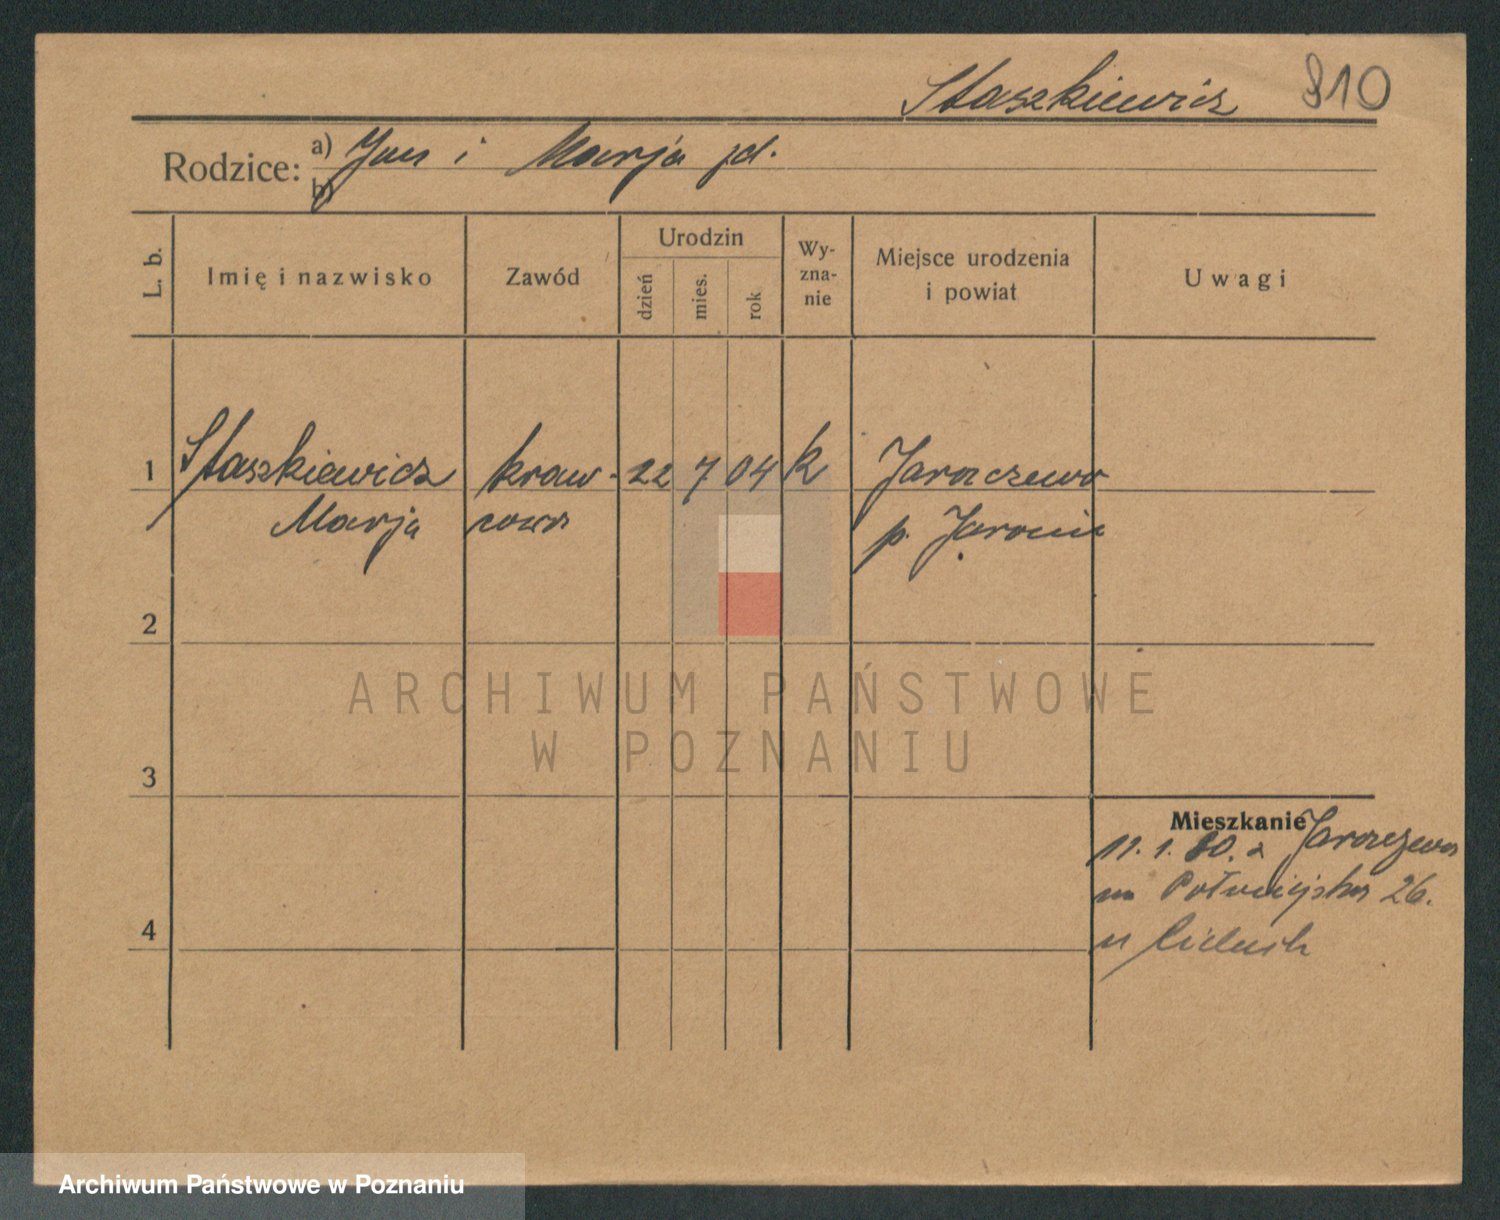 Staszkiewicz 910
Rodzice: a) Jan i Marja zd.
b)
L. b.
Imię i nazwisko
Zawód
Urodzin
dzień
mies.
rok
Wy-
zna-
nie
Miejsce urodzenia
i powiat
Uwagi
1 Staszkiewicz kraw- 22 7 04 k Jaraczewo
Marja cowa p. Jarocin
2
3
4
Mieszkanie
11. 1. 30. z Jaraczewa
na Półwiejska 26.
u
ARCHIWUM PAŃSTWOWE
W POZNANIU
Archiwum Państwowe w Poznaniu